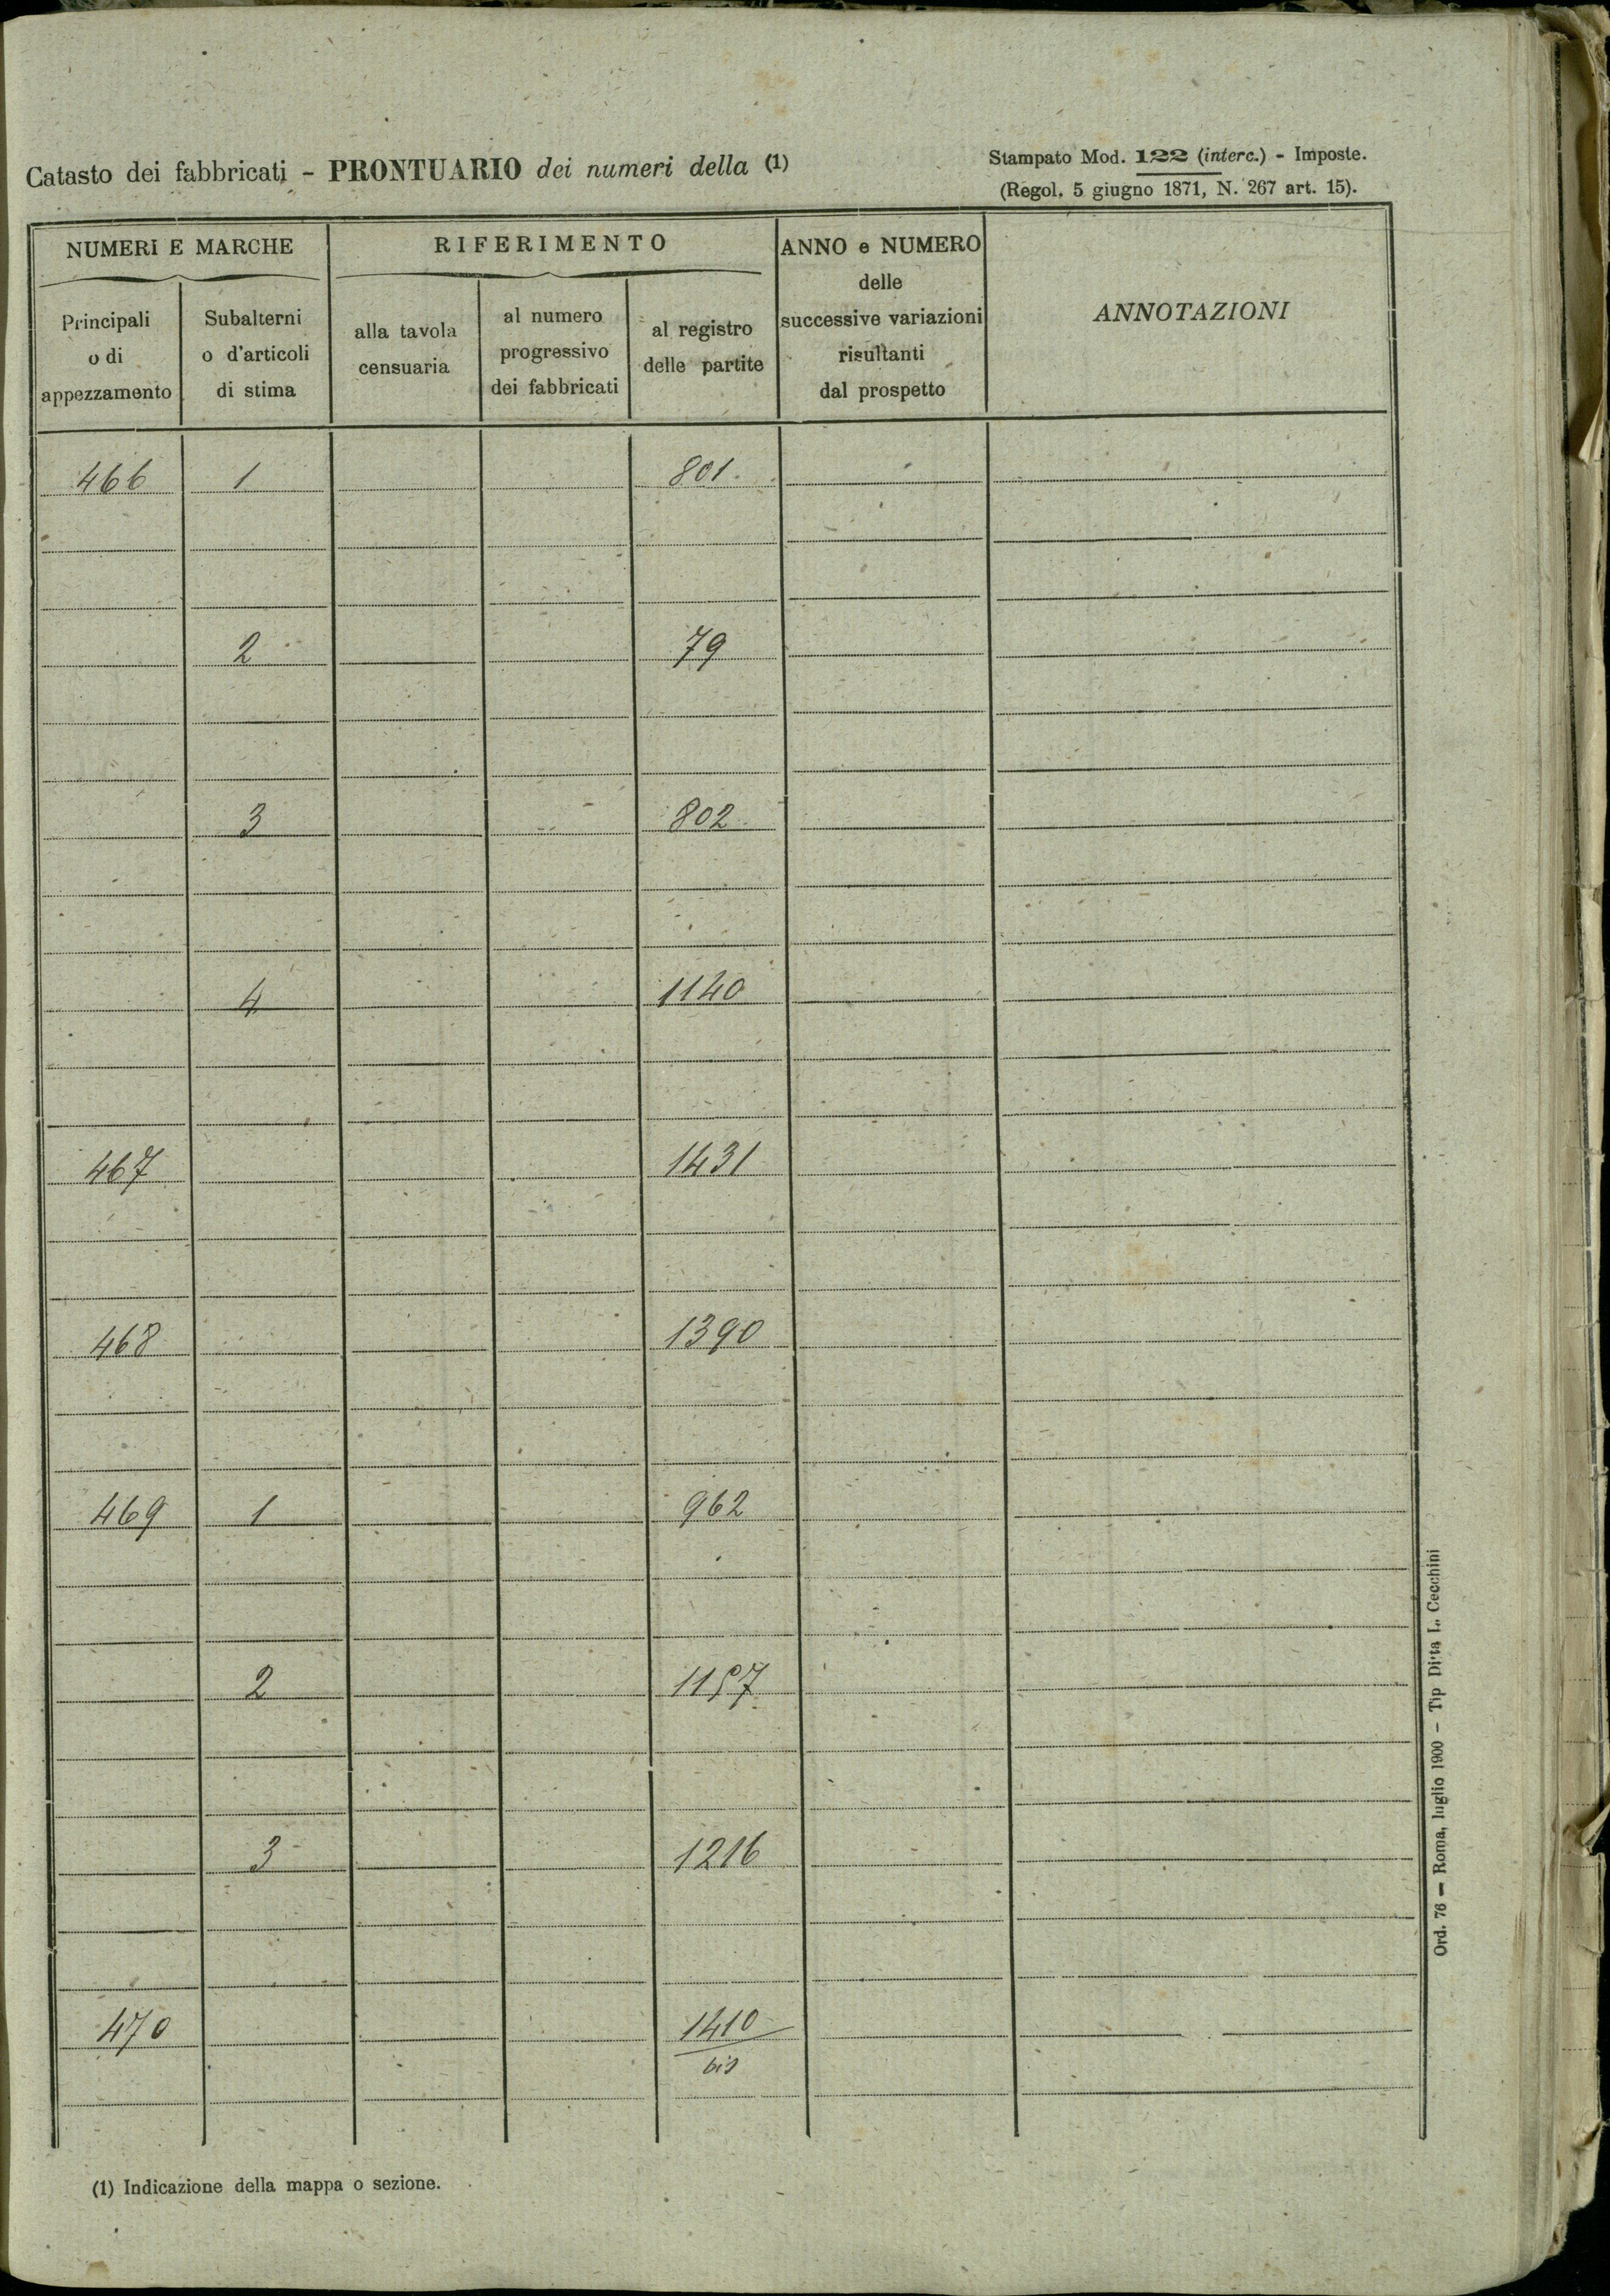 Catasto dei fabbricati - PRONTUARIO dei numeri della (1)
Stampato Mod. 122 (interc.) - Imposte.
(Regol. 5 giugno 1871, N. 267 art. 15).
NUMERI E MARCHE
RIFERIMENTO
ANNO e NUMERO
delle
successive variazioni
risultanti
dal prospetto
ANNOTAZIONI
Principali
o di
appezzamento
Subalterni
o d'articoli
di stima
alla tavola
censuaria
al numero
progressivo
dei fabbricati
al registro
delle partite
466 1 801.
2 79
3 802
4 1140
467 1431
468 1390
469 1 962
2 1157
3 1216
470 1410
bis
(1) Indicazione della mappa o sezione.
Ord. 76 — Roma, luglio 1900 - Tip Ditta L. Cecchini